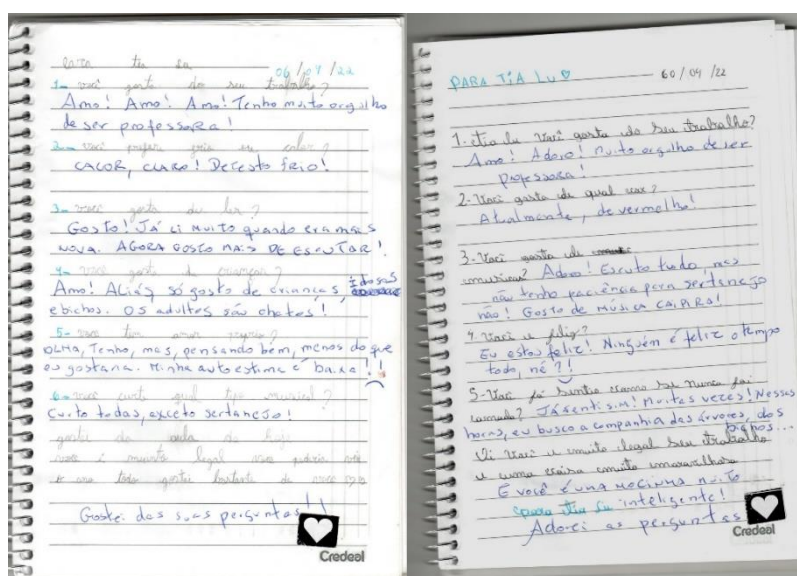 para tia lu
06/04/22
1- você gosta do seu trabalho?
Amo! Amo! Amo! Tenho muito orgulho
de ser professora!
2- você prefere frio ou calor?
CALOR, CLARO! Detesto frio!
3- você gosta de ler?
Gosto! Já li muito quando era mais
nova. AGORA GOSTO MAIS DE ESCUTAR!
4- você gosta de crianças?
Amo! Aliás, só gosto de crianças, idosos
e bichos. Os adultos são chatos!
5- você tem amor próprio?
OLHA, Tenho, mas, pensando bem, menos do que
eu gostaria. Minha autoestima é baixa!!
6- você curte qual tipo musical?
Curto todas, exceto sertanejo!
gostei da aula de hoje
você é muito legal você podia vir
o ano todo gostei bastante de você
Gostei das suas perguntas!!
Credeal
PARA TIA LU
60/04/22
1- tia lu você gosta do seu trabalho?
Amo! Adoro! Muito orgulho de ser
professora!
2- Você gosta de qual cor?
Atualmente, de vermelho!
3- Você gosta de
música? Adoro! Escuto tudo, mas
não tenho paciência para sertanejo
não! Gosto de MÚSICA CAIPIRA!
4. Você é feliz?
Eu estou feliz! Ninguém é feliz o tempo
todo, né?!
5- Você já sentiu como se nunca foi
amada? Já senti sim! Muitas vezes! Nessas
horas, eu busco a companhia das árvores, dos
bichos...
Vi você é muito legal seu trabalho
é uma coisa muito maravilhosa
E você é uma mocinha muito
para tia lu inteligente!
Adorei as perguntas
Credeal